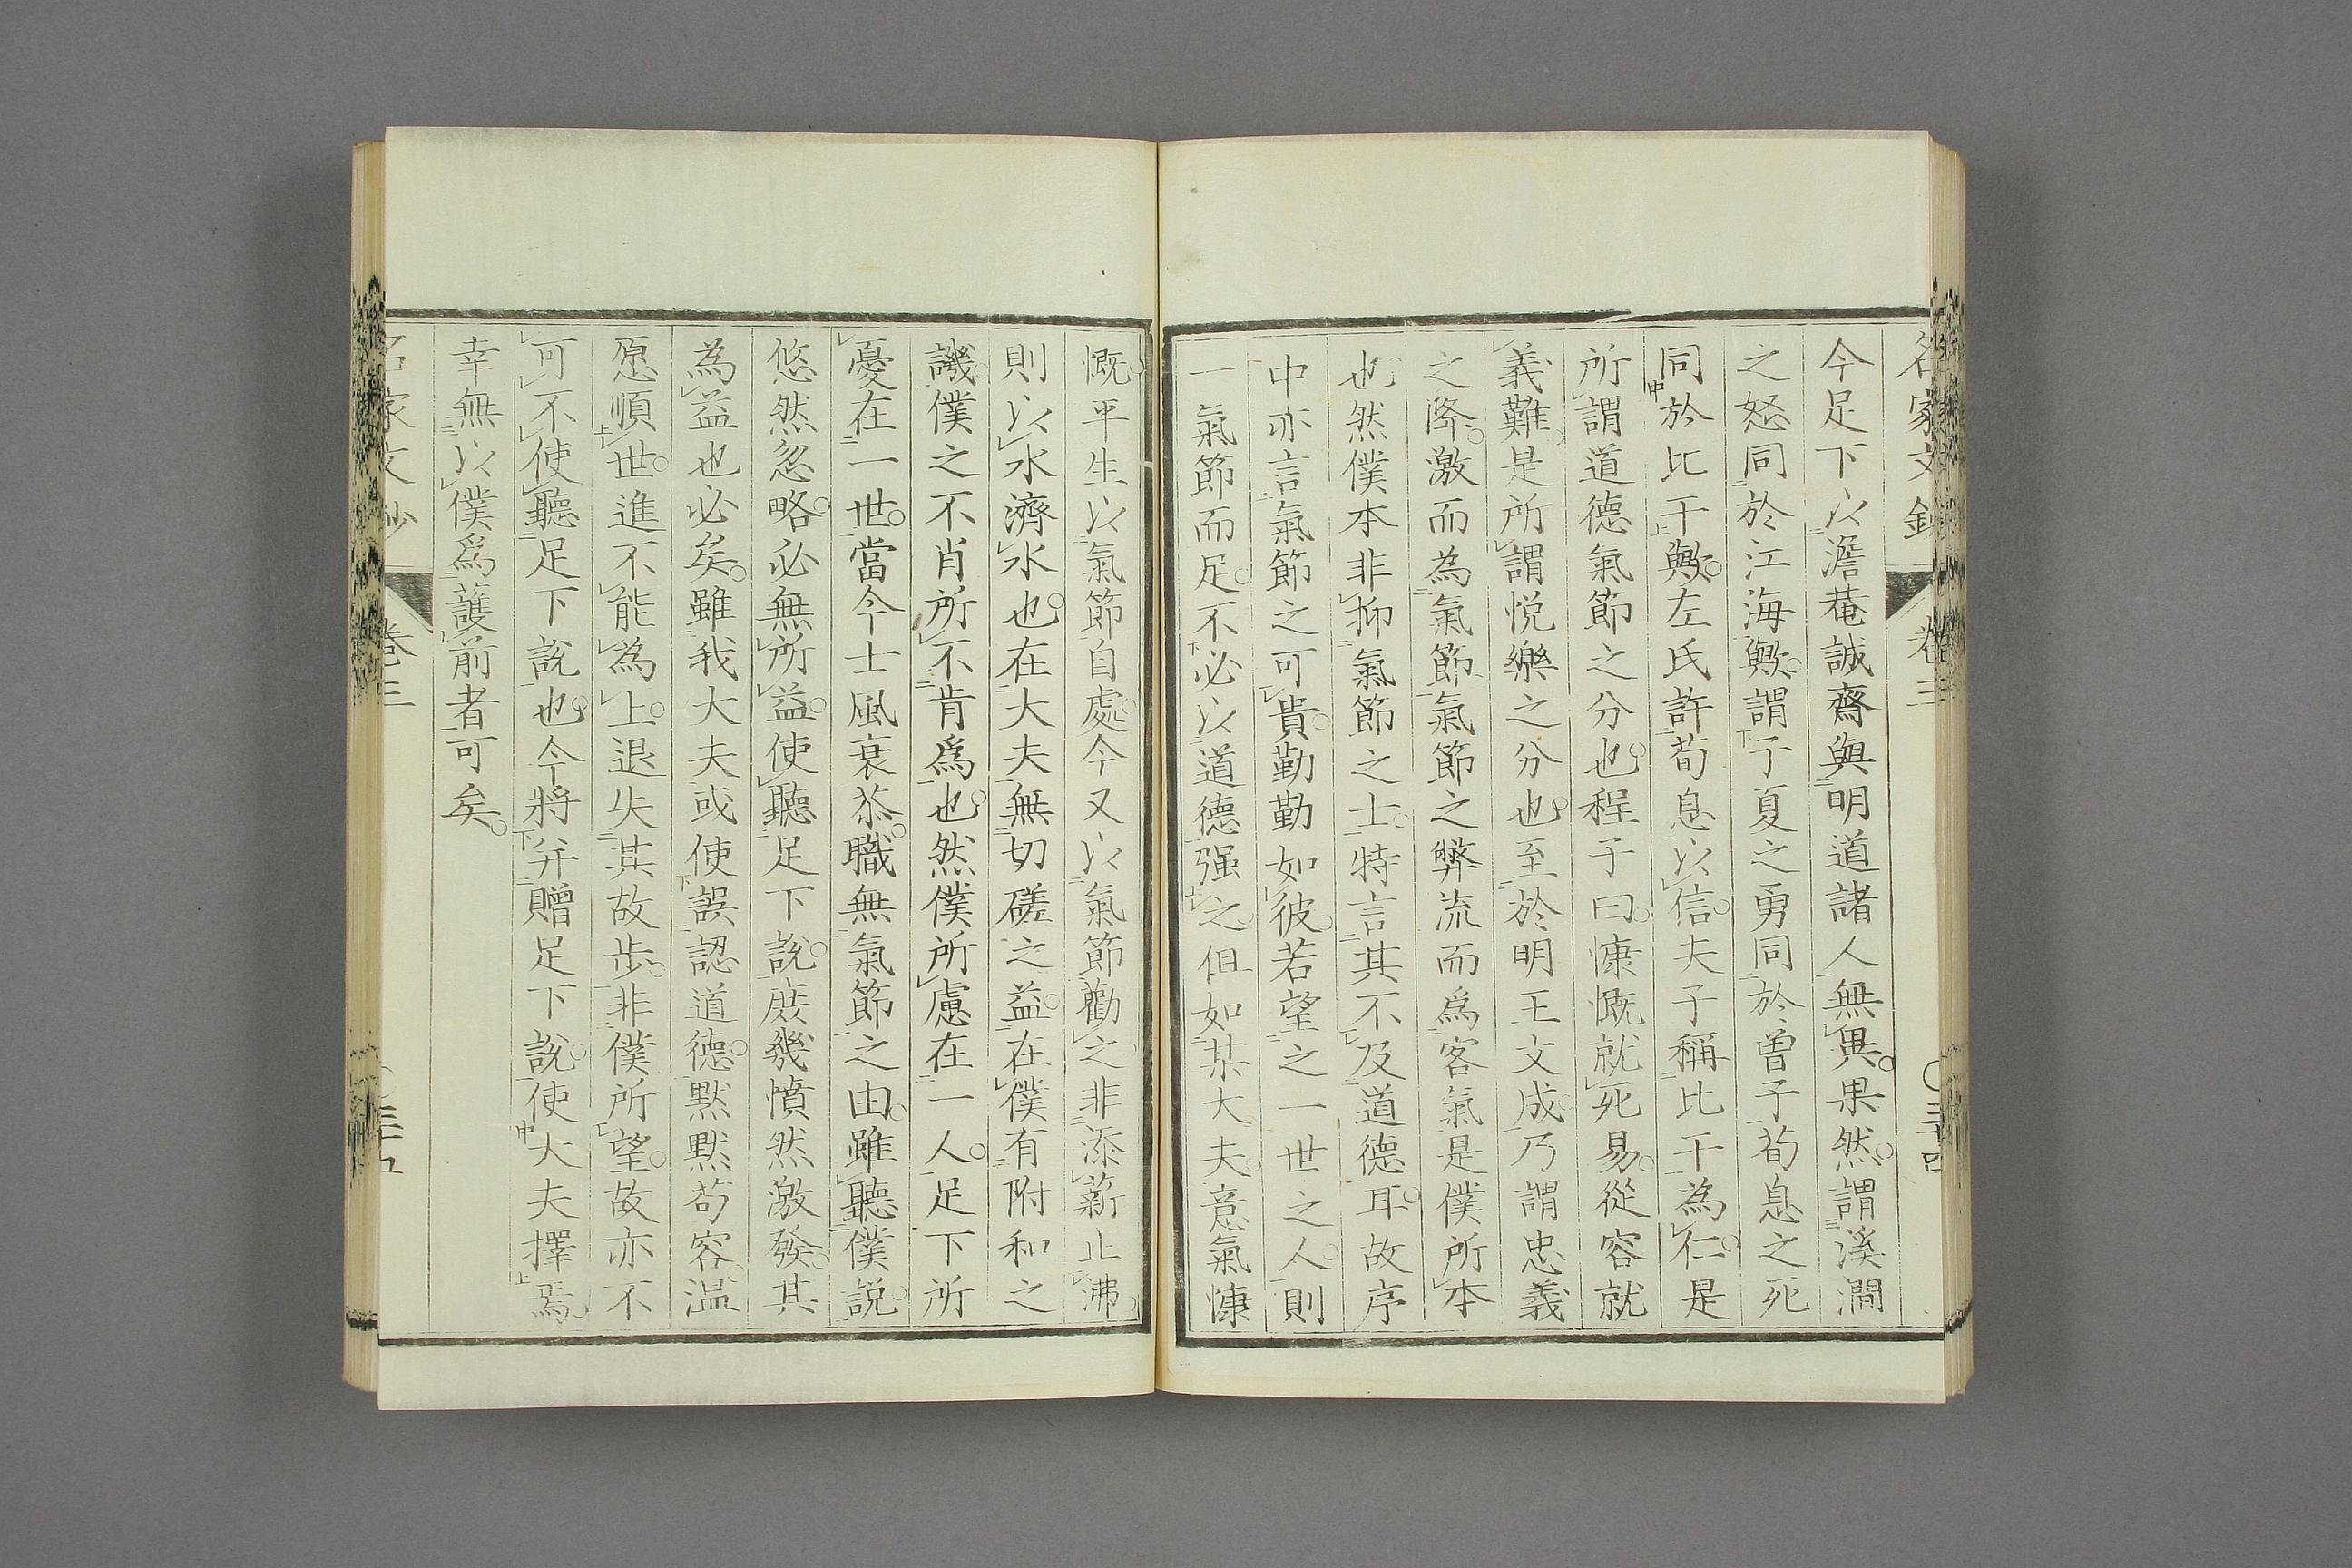 名家文鈔 卷三 〇三十四
今足下以澹菴誠齋與明道諸人無異果然謂溪澗
之怒同於江海歟謂子夏之勇同於曾子荀息之死
同於比干歟左氏許荀息以信夫子稱比干為仁是
所謂道德氣節之分也程子曰慷慨就死易從容就
義難是所謂悦樂之分也至於明王文成乃謂忠義
之降激而為氣節氣節之弊流而爲客氣是僕所本
也然僕本非抑氣節之士特言其不及道德耳故序
中亦言氣節之可貴勤勤如彼若望之一世之人則
一氣節而足不必以道德强之但如某大夫意氣慷
慨平生以氣節自處今又以氣節勸之非添薪止沸
則以水濟水也在大夫無切磋之益在僕有附和之
譏僕之不肖所不肯爲也然僕所慮在一人足下所
憂在一世當今士風衰苶職無氣節之由雖聽僕説
悠然忽略必無所益使聽足下說庶幾憤然激發其
為益也必矣雖我大夫或使誤認道德默默苟容温
愿順世進不能為上退失其故步非僕所望故亦不
可不使聽足下說也今將并贈足下說使大夫擇焉
幸無以僕爲護前者可矣
名家文鈔 卷三